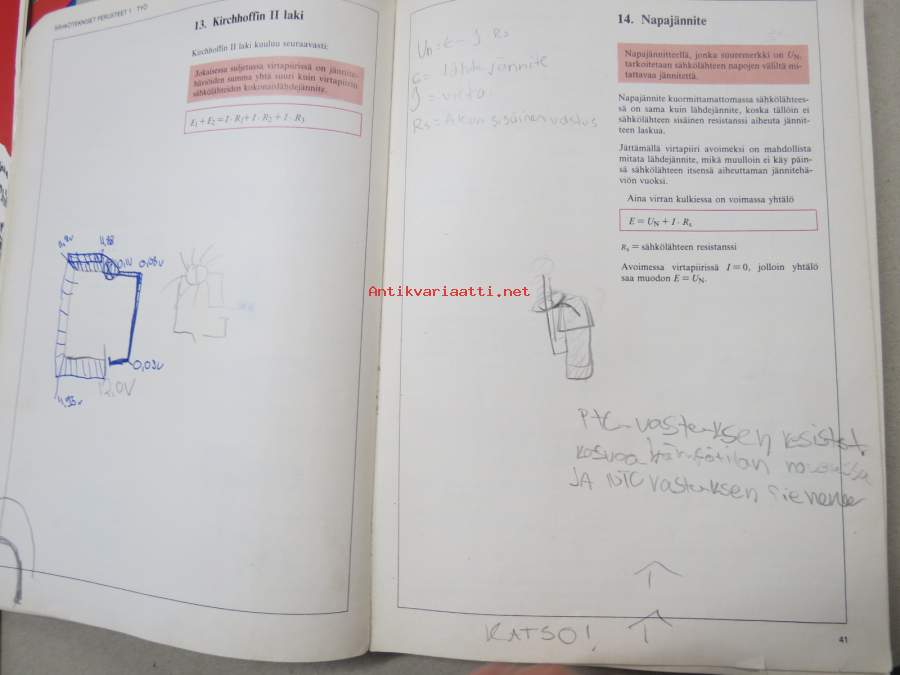 SÄHKÖTEKNISET PERUSTEET 1 TYÖ
13. Kirchhoffin II laki
Kirchhoffin II laki kuuluu seuraavasti:
Jokaisessa suljetussa virtapiirissä on jännite-
häviöiden summa yhtä suuri kuin virtapiirin
sähkölähteiden kokonaislähdejännite.
E₁ + E₂ = I · R₁ + I · R₂ + I · R₃
4,98
0,1V
0,03V
0,03V
4,95V
12,0V
Antikvariaatti.net
Un = E - J · Rs
E = lähdejännite
J = virta
Rs = Akun sisäinen vastus
14. Napajännite
Napajännitteellä, jonka suuremerkki on U_N,
tarkoitetaan sähkölähteen napojen väliltä mi-
tattavaa jännitettä.
Napajännite kuormittamattomassa sähkölähtees-
sä on sama kuin lähdejännite, koska tällöin ei
sähkölähteen sisäinen resistanssi aiheuta jännit-
teen laskua.
Jättämällä virtapiiri avoimeksi on mahdollista
mitata lähdejännite, mikä muulloin ei käy päin-
sä sähkölähteen itsensä aiheuttaman jännitehä-
viön vuoksi.
Aina virran kulkiessa on voimassa yhtälö
E = U_N + I · Rₛ
Rₛ = sähkölähteen resistanssi
Avoimessa virtapiirissä I = 0, jolloin yhtälö
saa muodon E = U_N.
PTC-vastuksen resist.
kasvaa lämpötilan noustessa
JA NTC vastuksen pienenee
KATSO!
41